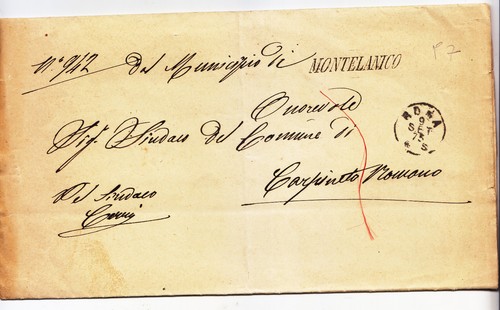 N.º 942 Dal Municipio di MONTELANICO
P2
Onorevole
Sig.r Sindaco del Comune di
Carpineto Romano
Il Sindaco
ROMA
9
SET
75
* S